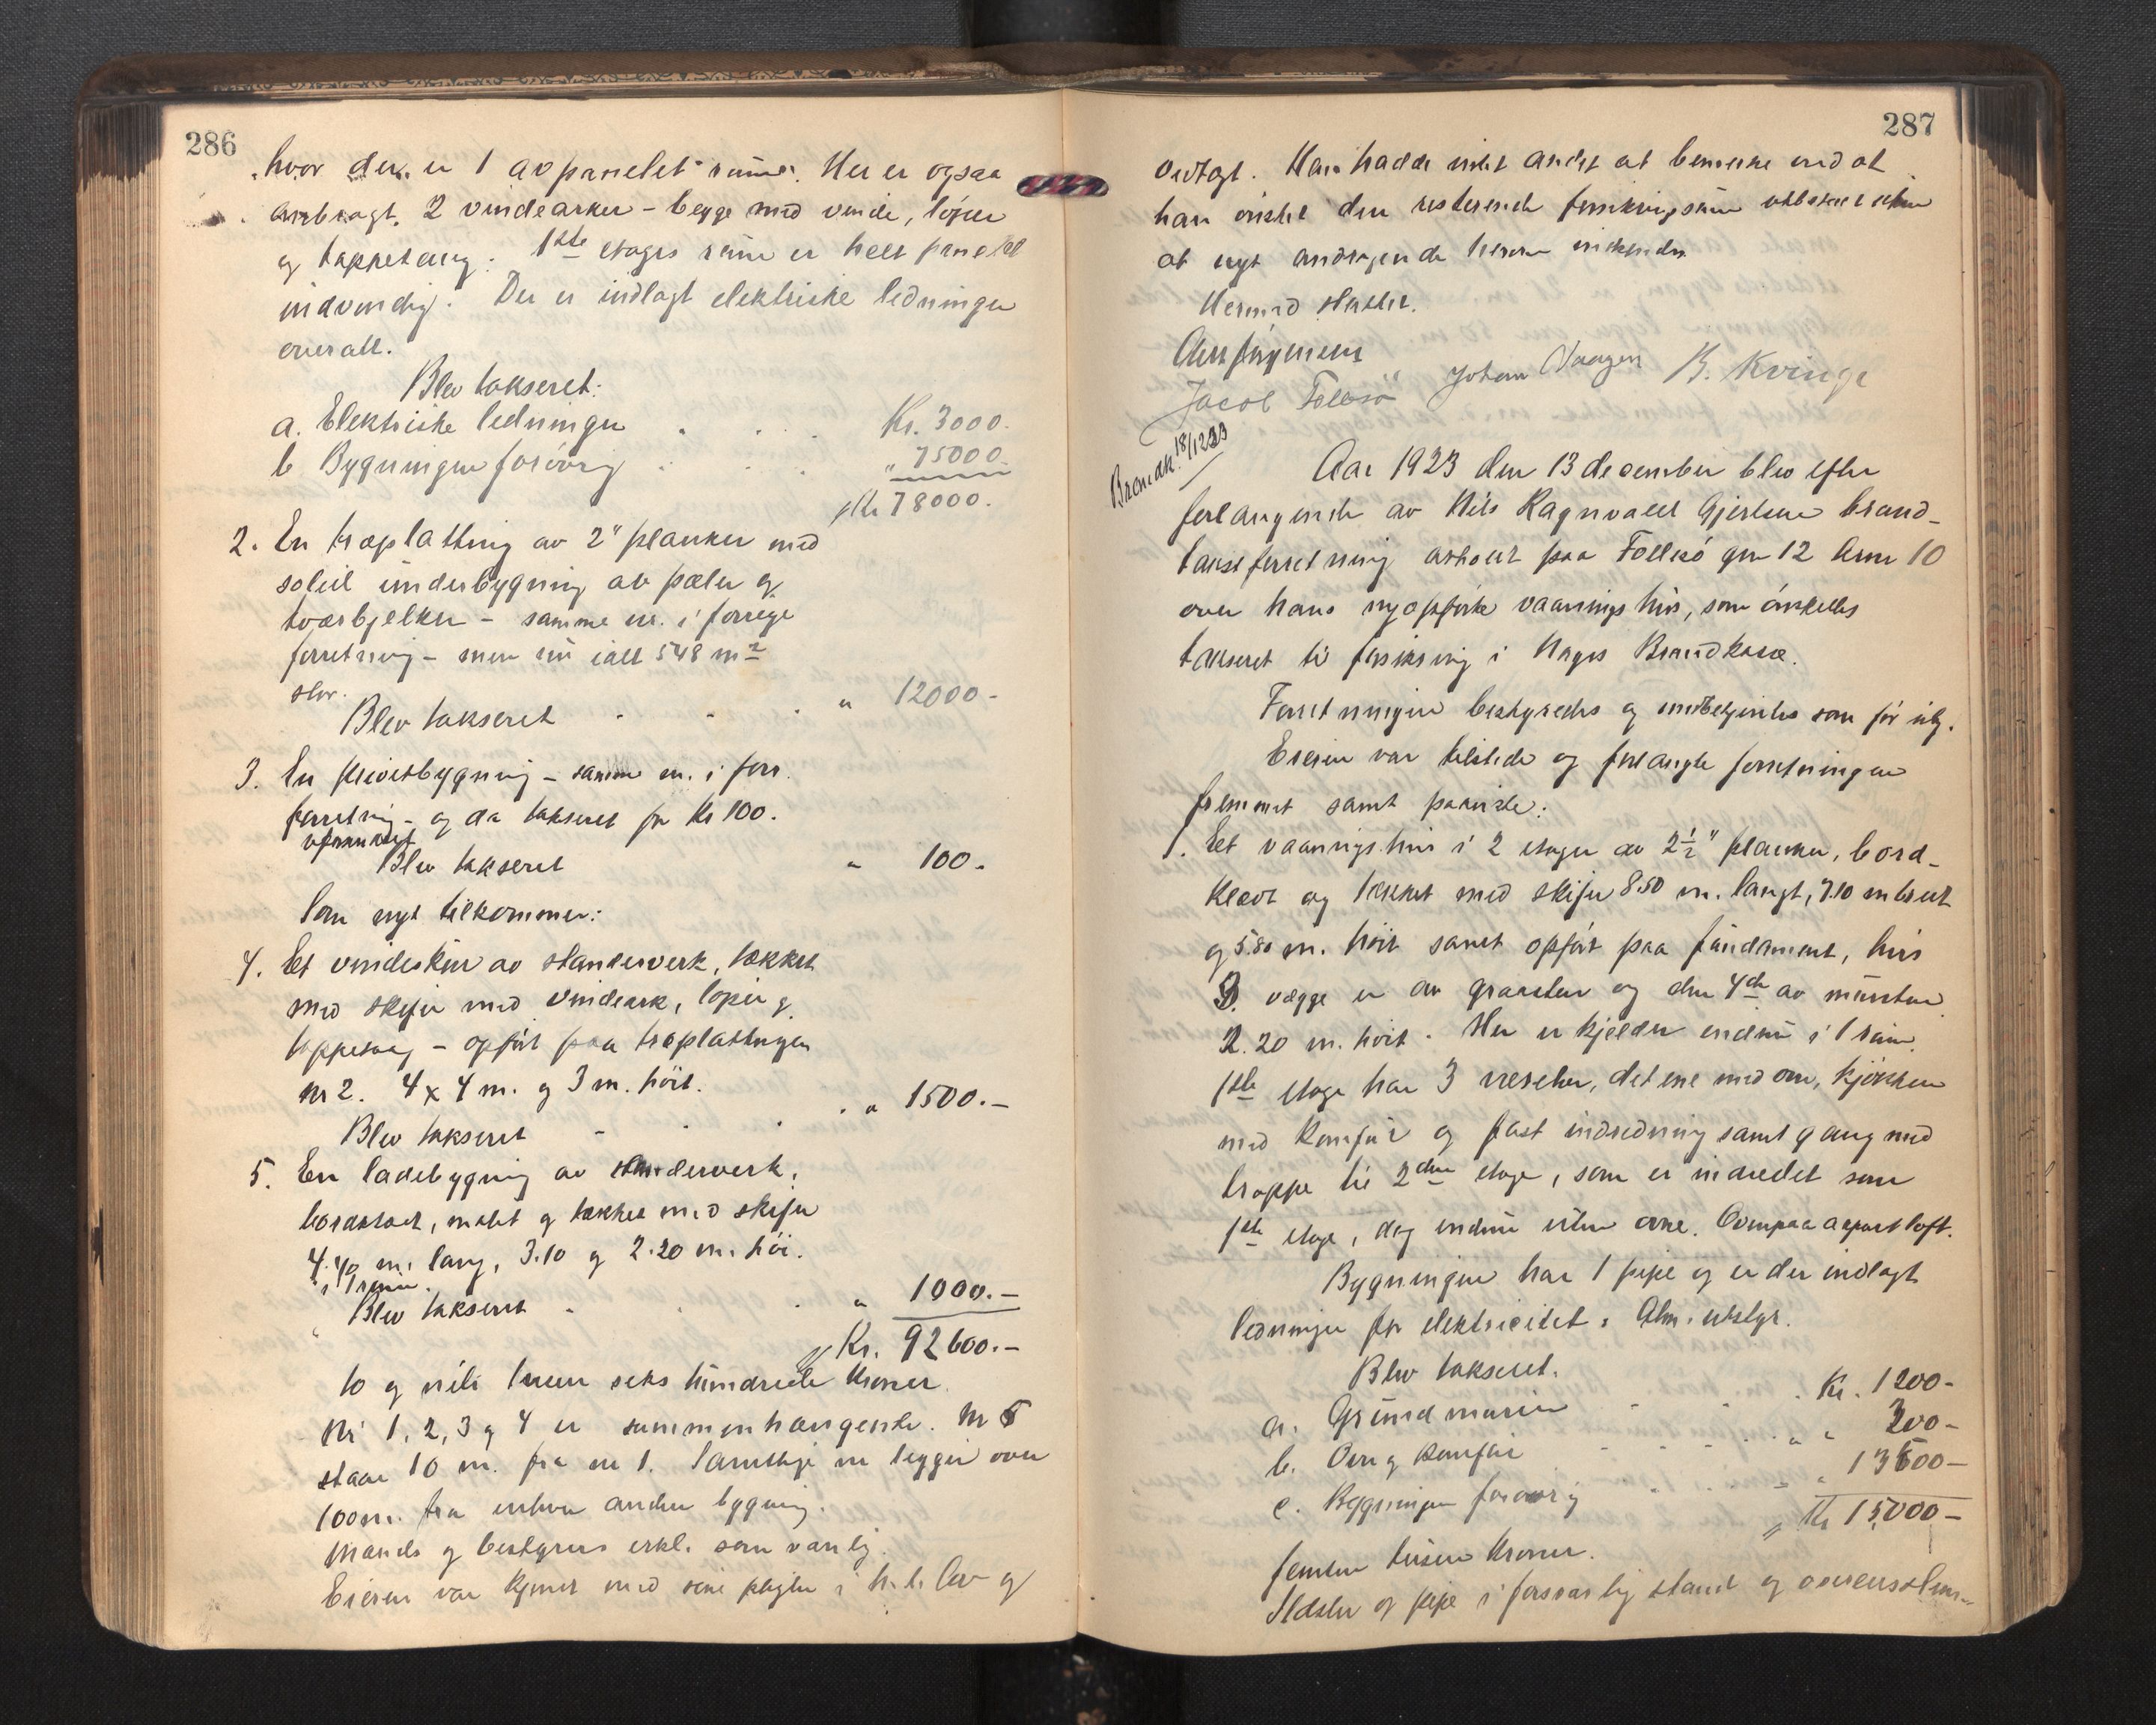 286
hvor der er 1 avpanelet rum. Her er ogsaa
anbragt 2 vindearker - begge med vinde, löper
og tappetaug. 1ste etages rum er helt panelet
indvendig. Der er indlagt elektriske ledninger
overalt.
Blev takseret:
a. Elektriske ledninger . . . Kr. 3000.
b Bygningen forövrig . . . " 75000.
Kr 78000.
2. En træplatting av 2" planker med
solid underbygning av pæler og
tværbjelker - samme nr. i forrige
forretning - men nu ialt 548 m2
stor.
Blev takseret . . . " 12000 -
3. En privetbygning - samme nr. i forr.
forretning - og da takseret for Kr 100.
uforandret
Blev takseret " 100.
Som nyt tilkommer:
4. Et vindeskur av standerverk, tækket
med skifer med vindeark, löper og
tappetaug - opfört paa træplattingen
nr 2. 4 x 4 m. og 3 m. höit.
Blev takseret - . . . " 1500.-
5. En ladebygning av standerverk,
bordklædt, malet og tækket med skifer
4.40 m. lang, 3.10 og 2.20 m. höi.
i 1 rum.
Blev takseret - . . " 1000.-
Kr. 92600.-
to og niti tusen seks hundrede Kroner.
Nr 1, 2, 3 og 4 er sammenhængende. Nr 5
staar 10 m. fra nr 1. Samtlige nr ligger over
100 m. fra enhver anden bygning.
Mænds og bestyrers erkl. som vanlig.
Eieren var kjent med sine pligter i h. t. lov og
287
vedtægt. Han hadde intet andet at bemerke end at
han önsket den resterende forsikringssum utbetalt uten
at nyt andragende herom indsendes
Hermed sluttet.
Jacob Follesö Johan Haagen B. Kvinge
18/12 23
Aar 1923 den 13 december blev efter
forlangende av Nils Ragnvald Gjertsen brand-
takstforretning avholdt paa Follesö gnr 12 brnr 10
over hans nyopförte vaaningshus, som önskedes
takseret til forsikring i Norges Brandkasse.
Forretningen bestyredes og medbetjentes som för utg.
Eieren var tilstede og forlangte forretningen
fremmet samt paaviste:
1. Et vaaningshus i 2 etager av 2½" planker, bord-
klædt og tækket med skifer 8.50 m. langt, 7.10 m bredt
og 5.80 m. höit samt opfört paa fundament, hvis
3 vægge er av graasten og den 4de av mursten
2.20 m. höit. Her er kjelder endnu i 1 rum.
1ste etage har 3 værelser, det ene med ovn, kjökken
med komfur og fast indredning samt gang med
trappe til 2den etage, som er indredet som
1ste etage, dog endnu uten ovne. Ovenpaa aapent loft.
Bygningen har 1 pipe og er der indlagt
ledninger for elektricitet. Alm. utstyr.
Blev takseret.
a. Grundmuren - . . Kr. 1200-
b. Ovn og komfur - - . . " " 300-
c. Bygningen forövrig . . . " 13500-
Kr 15000-
femten tusen Kroner.
Ildsteder og pipe i forsvarlig stand og overensstem-